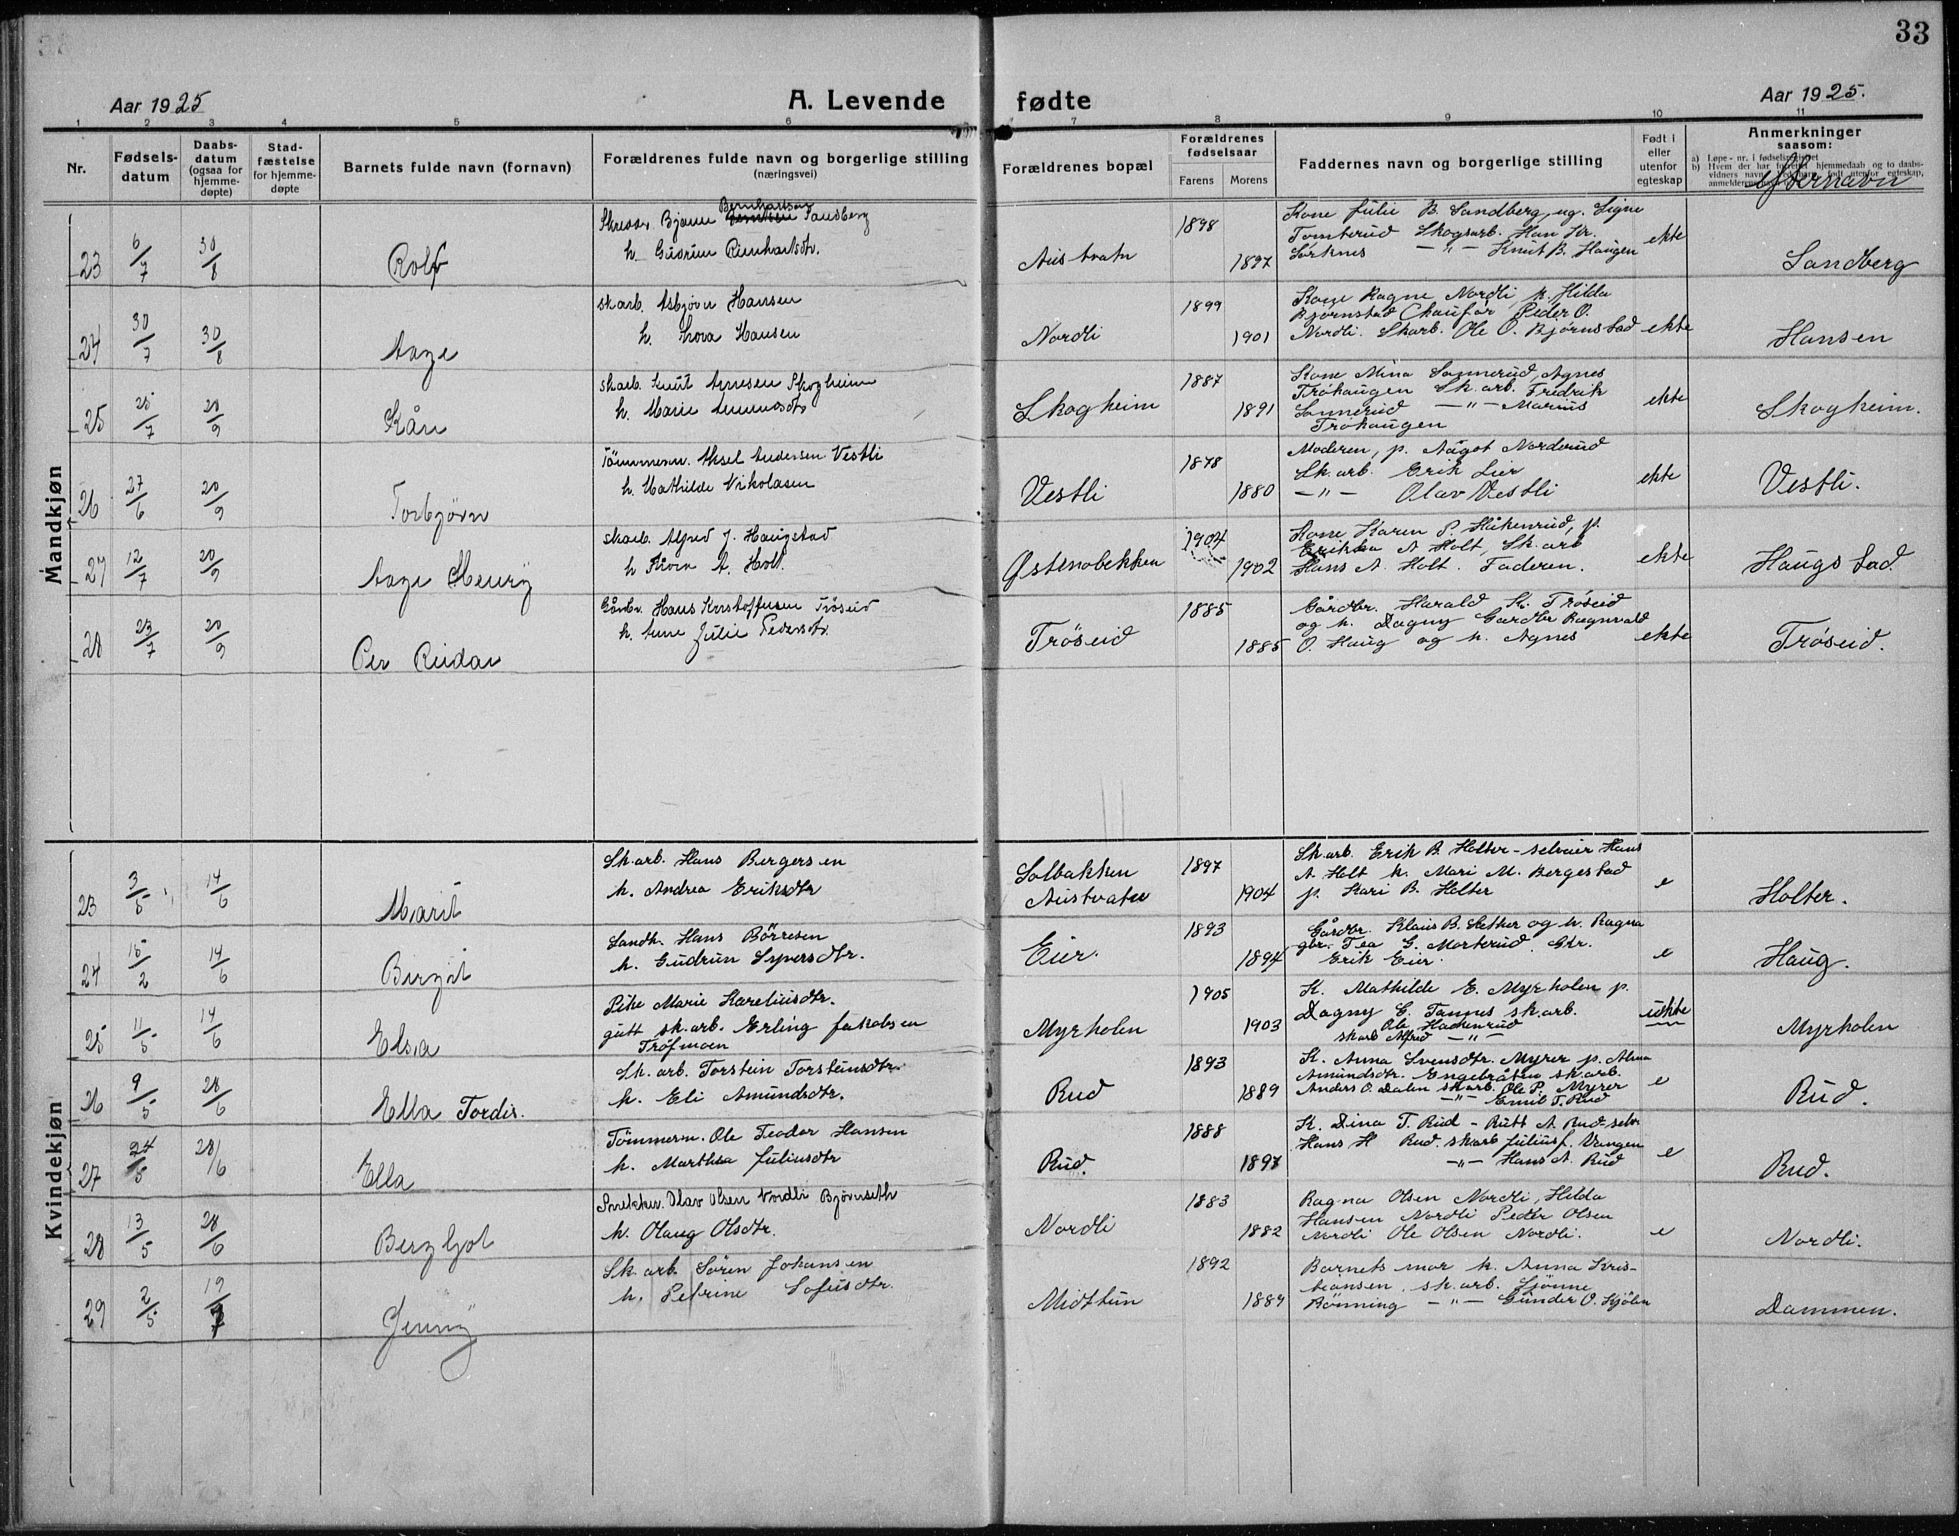 33
Aar 1925
A. Levende fødte
Aar 1925.
1 2 3 4 5 6 7 8 9 10 11
Nr.
Fødsels-
datum
Daabs-
datum
(ogsaa for
hjemme-
døpte)
Stad-
fæstelse
for hjemme-
døpte
Barnets fulde navn (fornavn)
Forældrenes fulde navn og borgerlige stilling
(næringsvei)
Forældrenes bopæl
Forældrenes
fødselsaar
Farens Morens
Faddernes navn og borgerlige stilling
Født i
eller
utenfor
egteskap
Anmerkninger
saasom:
efternavn
Mandkjøn
23 6/7 30/8 Rolf
Bernhartsen
Bjarne Sandberg
h. Gudrun
Austvatn
1898
1897
Kone Julie B. Sandberg, ug. Signe
Tomterud Skogsarb. Han Kr.
Sørknes —"— Knut B. Haugen
ekte
Sandberg
24 30/7 30/8 Aage
skarb. Asbjørn Hansen
h. Hansen
Nordli
1899
1901
Kone Ragne Nordli, p. Hilda
Bjørnstad Chaufør Peder O.
Nordli. Skarb. Ole O. Bjørnstad
ekte
Hansen
25 25/7 20/9 Kån
skarb. Knut Arnesen Skogheim
h. Marie
Skogheim
1887
1891
Kone Mina Sonnerud, Agnes
Trøhaugen Sk. arb. Fredrik
Sonnerud —"— Marius
Trøhaugen
ekte
Skogheim.
26 27/6 20/9 Torbjørn
Tömmerm. Aksel Andersen Vestli
h. Mathilde Nikolasen
Vestli
1878
1880
Moderen, p. Aagot Norderud
Sk. arb. Erik Lier
—"— Olav Vestli
ekte
Vestli.
27 12/7 20/9 Aage Henry
skarb. Alfred J. Haugstad
h. A. Holt.
Østenobekken
1904
1902
Kone Karen P. Håkenrud, p.
A Holt, Sk. arb
Hans A. Holt. Faderen.
ekte
Haugstad
28 23/7 20/9 Per Reidar
Gårdbr. Hans Kristoffersen Tröseid
h. Anne Julie Pedersdtr.
Tröseid
1885
1885
Gårdbr. Harald K. Trøseid
og h. Dagny Gardbr Ragnvald
O. Haug og h. Agnes
ekte
Trøseid.
Kvindekjøn
23 3/5 14/6 Marit
Sk. arb. Hans Bergersen
h. Andrea Eriksdtr
Solbakken
Austvatn
1897
1904
Sk arb. Erik B. Holter - selveier Hans
A Holt h. Mari M. Bergestad
p. Kari B. Holter
e
Holter.
24 15/2 14/6 Birgit
Landh. Hans Börresen
h. Gudrun Syversdtr.
Eier.
1893
1894
Gårdbr. Klaus B. Sether og h. Ragna
gbr. Tea G. Morterud. Gbr.
Erik Eier.
e
Haug.
25 11/5 14/6 Elsa
Pike Marie Kareliusdtr.
gutt sk. arb. Erling Jakobsen
Tröfmoen
Myrholen
1905
1903
K. Mathilde E. Myrholen p.
Dagny E. Tannes sk arb.
Ole Hackenrud
skarb Alfred —"—
uekte
Myrholen
26 9/5 28/6 Ella Tordis.
Sk. arb. Torstein Torsteinsdtr.
h. Eli Amundsdtr.
Rud
1893
1889
K. Anna Svensdtr. Myrer p. Alma
Amundsdtr. Engebråten sk. arb.
Anders O. Dalen sk arb. Ole P. Myrer
—"— Emil T. Rud
e
Rud.
27 24/5 28/6 Ella
Tömmerm. Ole Teodor Hansen
h. Marthea Juliusdtr
Rud.
1888
1897
K. Dina T. Rud - Rutt A Rud selv.
Hans H Rud. skarb Julius J. Vangen
—"— Hans A. Rud
e
Rud.
28 13/5 28/6 Bergljot
Snekker. Olav Olsen Nordli Bjørnseth
h. Olaug Olsdtr.
Nordli
1883
1882
Ragna Olsen Nordli, Hilda
Hansen Nordli Peder Olsen
Nordli Ole Olsen Nordli.
e
Nordli.
29 2/5 19/7 Jenny
Sk. arb. Sören Johansen
h. Petrine Sofusdtr.
Midttun
1892
1889
Barnets mor k. Anna Kris-
tiansen. sk. arb. Sjønne
Rønning —"— Gunder O. Kjølen
Dammen.